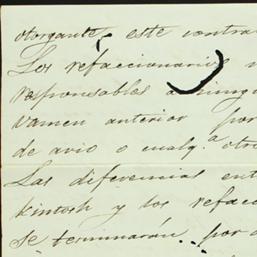 otorgante, este contra
Los refaccionarios
responsables a ningu
vamen anterior por
de avio o cualq.a otr
Las diferencias ent
kintosh y los refacc
se terminarán por